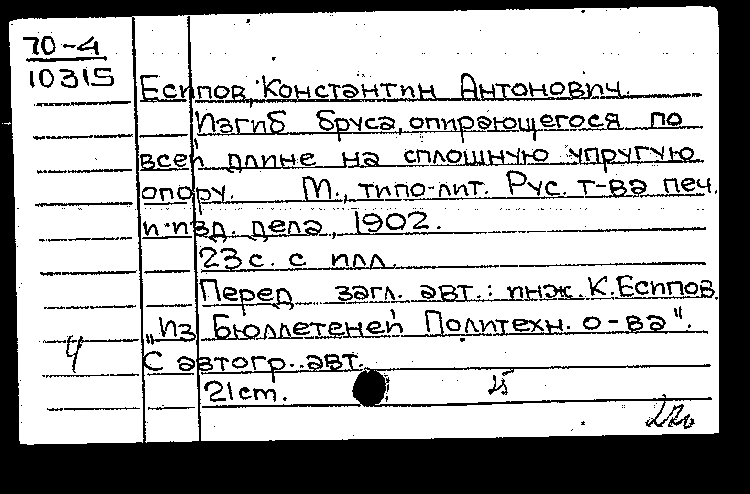 70-4
10315
Есипов, Константин Антонович.
Изгиб бруса, опирающегося по
всей длине на сплошную упругую
опору. М., типо-лит. Рус. т-ва печ.
и изд. дела, 1902.
23 с. с илл.
Перед загл. авт.: инж. К. Есипов.
„Из Бюллетеней Политехн. о-ва".
С автогр. авт.
21 см.
25
4